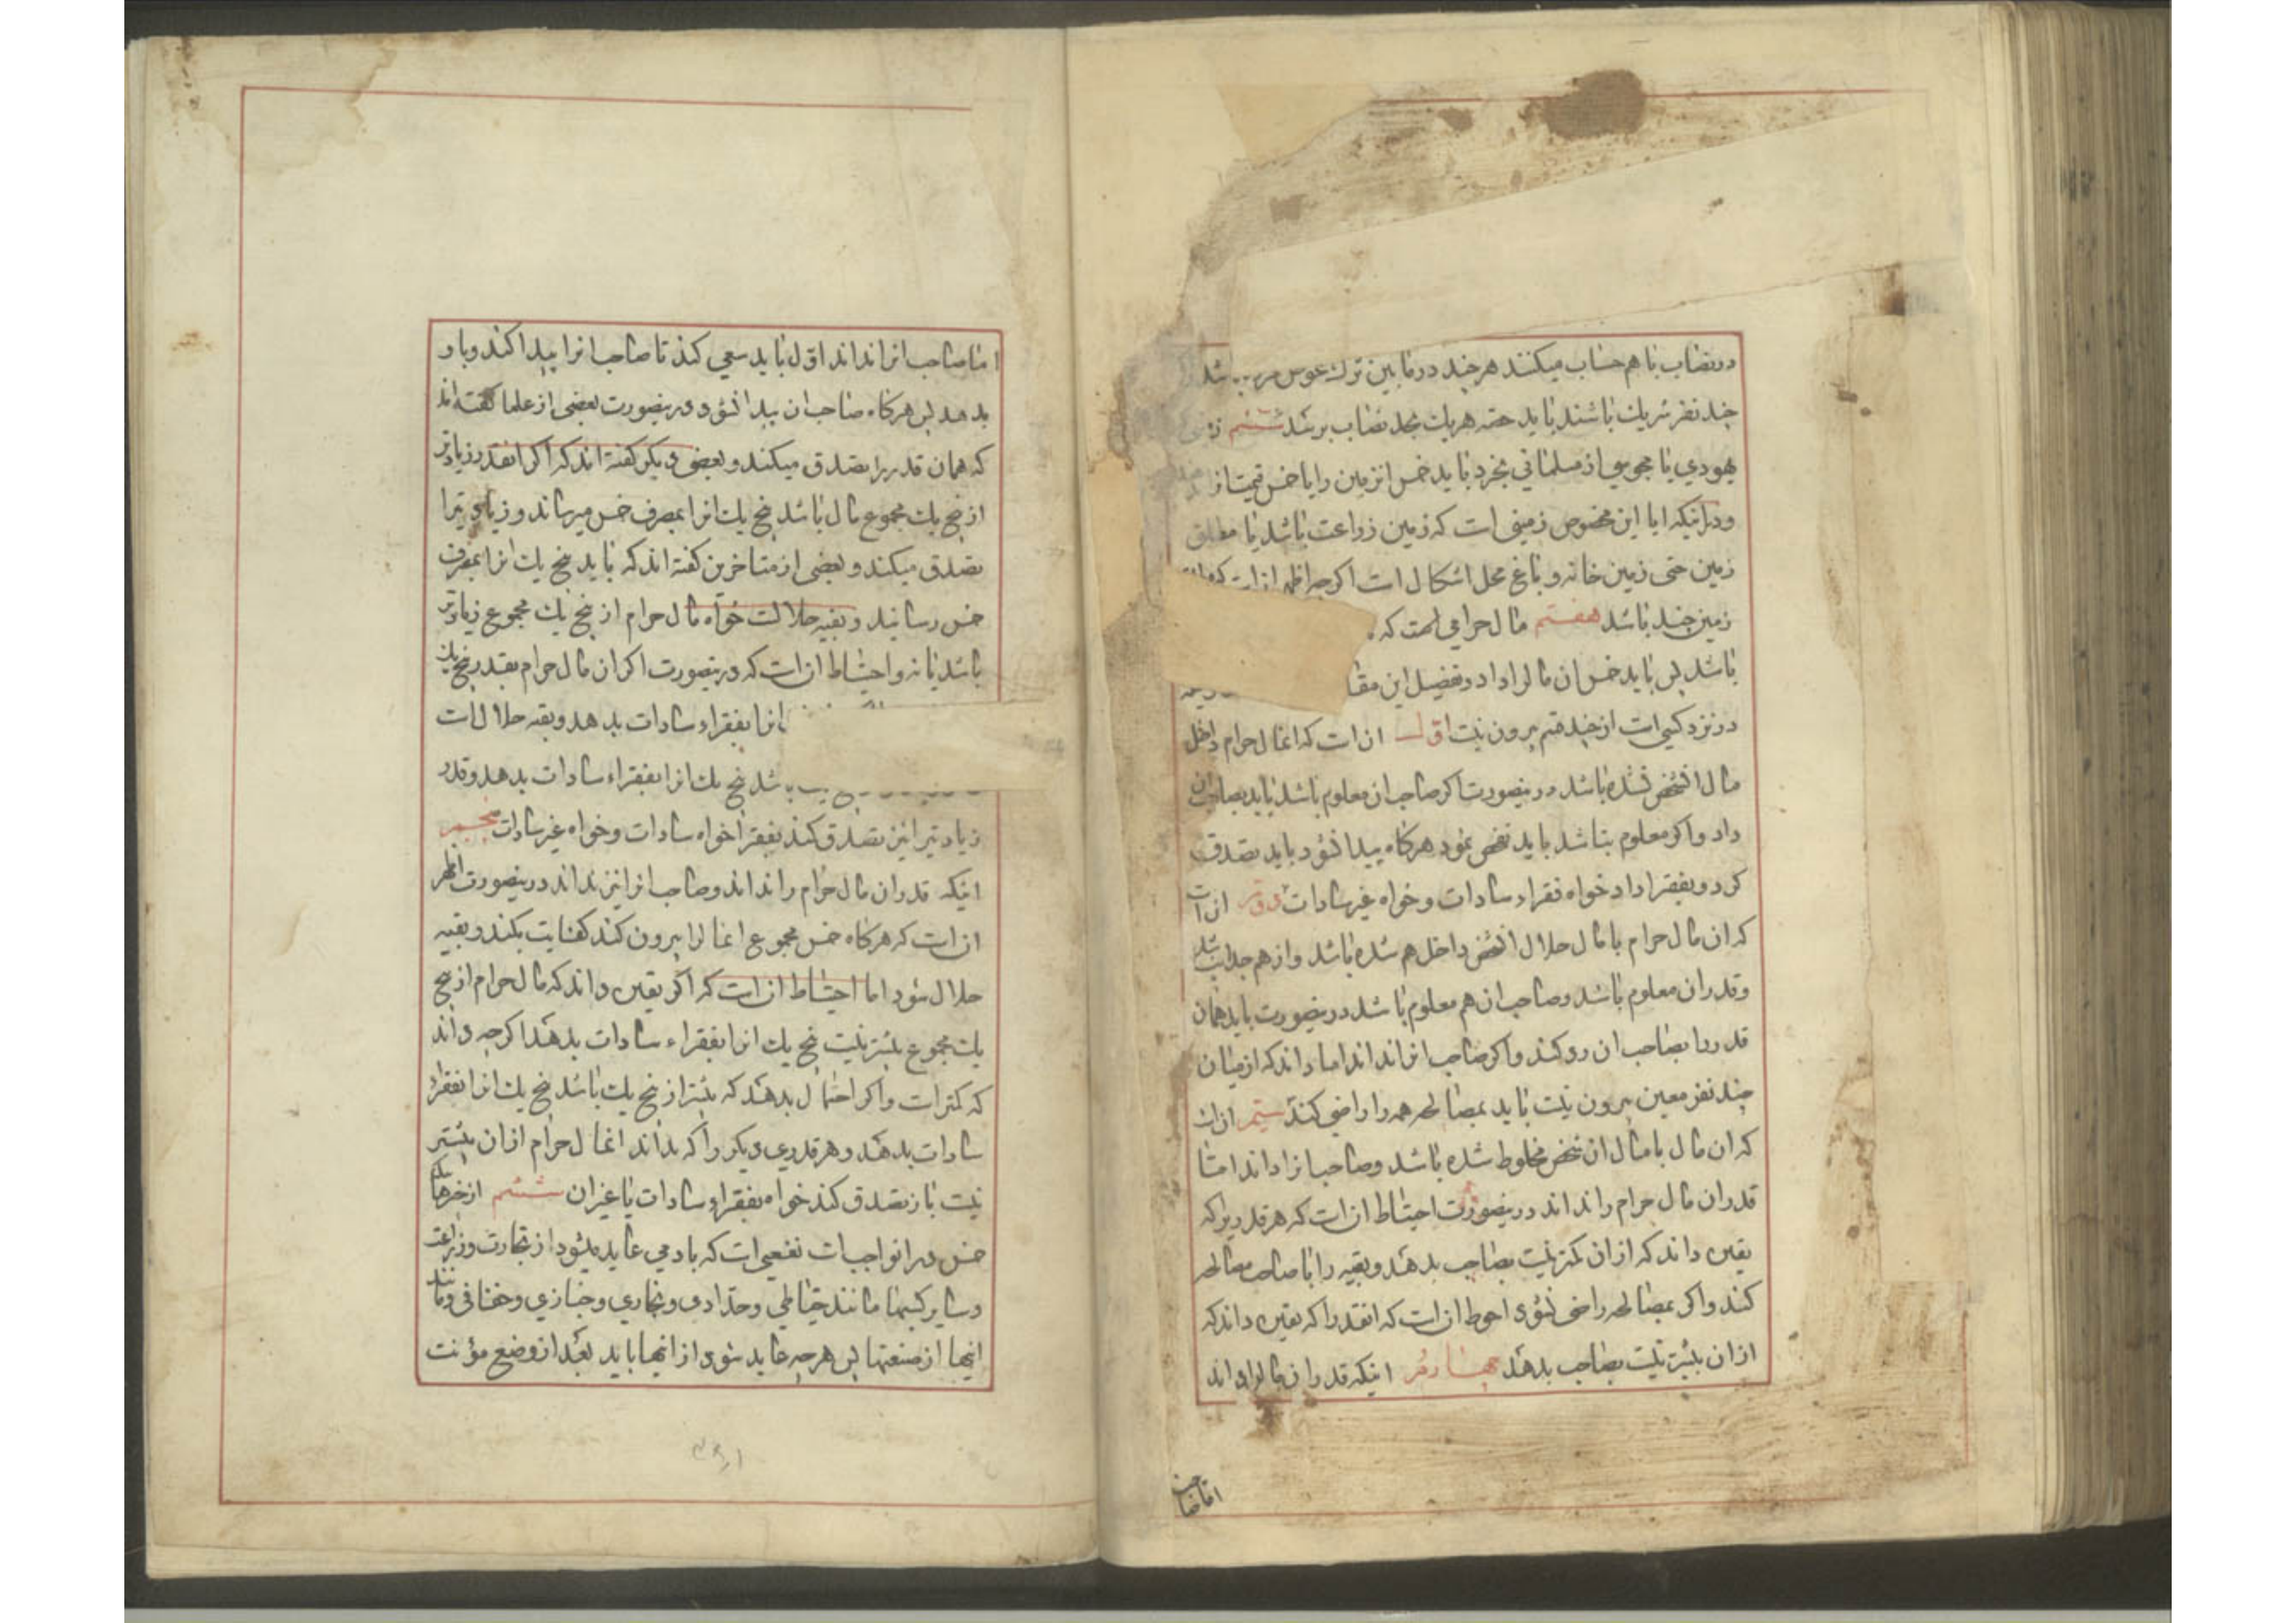 در نصاب با هم حساب میکنند هر چند در مابین ترك عوض
چند نفر شریك باشند باید حصه هریك بحد نصاب برسد ششم
یهودي یا مجوسي از مسلماني بخرد باید خمس انزمین را یا خمس قیمت انرا
و در اینکه ایا این مخصوص زمینی است که زمین زراعت باشد یا مطلق
زمین حتی زمین خانه و باغ محل اشکال است اکرچه اظهر انست که
زمین چند باشد هفتم مال حرامي است که
باشد پس باید خمس ان مالرا داد و تفضیل این
در نزد کسی است از چند قسم بیرون نیست اول ان است که انمال حرام داخل
مال انشخص نشده باشد در ینصورت اکر صاحب ان معلوم باشد باید بصاحبش
داد و اکر معلوم نباشد باید تفحص نمود هرکاه پیدا نشود باید تصدق
کرد و بفقرا داد خواه فقراء سادات و خواه غیر سادات دوم ان است
که ان مال حرام با مال حلال انشخص داخل هم شده باشد و از هم جدا نباشد
و قدر ان معلوم باشد و صاحب ان هم معلوم باشد در ینصورت باید همان
قدر را بصاحب ان رد کند و اکر صاحب انرا نداند اما داند که از میان
چند نفر معین بیرون نیست باید بمصالحه همه را راضی کند سیم ان است
که ان مال با مال ان شخص مخلوط شده باشد و صاحب انرا داند اما
قدر ان مال حرام را نداند در ینصورت احتیاط ان است که هر قدریرا که
یقین داند که از ان کمتر نیست بصاحب بدهد و بقیه را با صاحب مصالحه
کند و اکر بمصالحه راضی نشود احوط ان است که انقدر را که یقین داند که
از ان بیشتر نیست بصاحب بدهد چهارم اینکه قدر ان مالرا داند
اما صاحب
اما صاحب انرا نداند اول باید سعي کند تا صاحب انرا پیدا کند و باو
بدهد پس هرکاه صاحب ان پیدا نشود در ینصورت بعضی از علما کفته اند
که همان قدر را تصدق میکند و بعضی دیکر کفته اند که اکر انقدر زیادتر
از پنج یك مجموع مال باشد پنج یك انرا بمصرف خمس میرساند و زیادتیرا
تصدق میکند و بعضی از متاخرین کفته اند که باید پنج یك انرا بمصرف
خمس رسانید و بقیه حلالست خواه مال حرام از پنج یك مجموع زیادتر
باشد یا نه و احتیاط ان است که در ینصورت اکر ان مال حرام بقدر پنج یك
انرا بفقراء سادات بدهد و بقیه حلال است
باشد پنج یك انرا بفقراء سادات بدهد و قدر
زیادتیرا نیز تصدق کند بفقرا خواه سادات و خواه غیر سادات پنجم
اینکه قدر ان مال حرام را نداند و صاحب انرا نیز نداند در ینصورت اظهر
ان است که هرکاه خمس مجموع انمالرا بیرون کند کفایت بکند و بقیه
حلال شود اما احتیاط ان است که اکر یقین داند که مال حرام از پنج
یك مجموع بیشتر نیست پنج یك انرا بفقراء سادات بدهد اکرچه داند
که کمتر است و اکر احتمال بدهد که بیشتر از پنج یك باشد پنج یك انرا بفقراء
سادات بدهد و هر قدري دیکر را که بداند انمال حرام از ان بیشتر
نیست باز تصدق کند خواه بفقراء سادات یا غیر ان ششم از چیزهائیکه
خمس در انواجب است نفعیست که بادمي عاید میشود از تجارت و زراعت
و سایر کسبها مانند خیاطي و حدادي و نجاري و خبازي و خفافي و مانند
اینها از صنعتها پس هرچه عاید شود از اینها باید بعد از وضع مؤنت